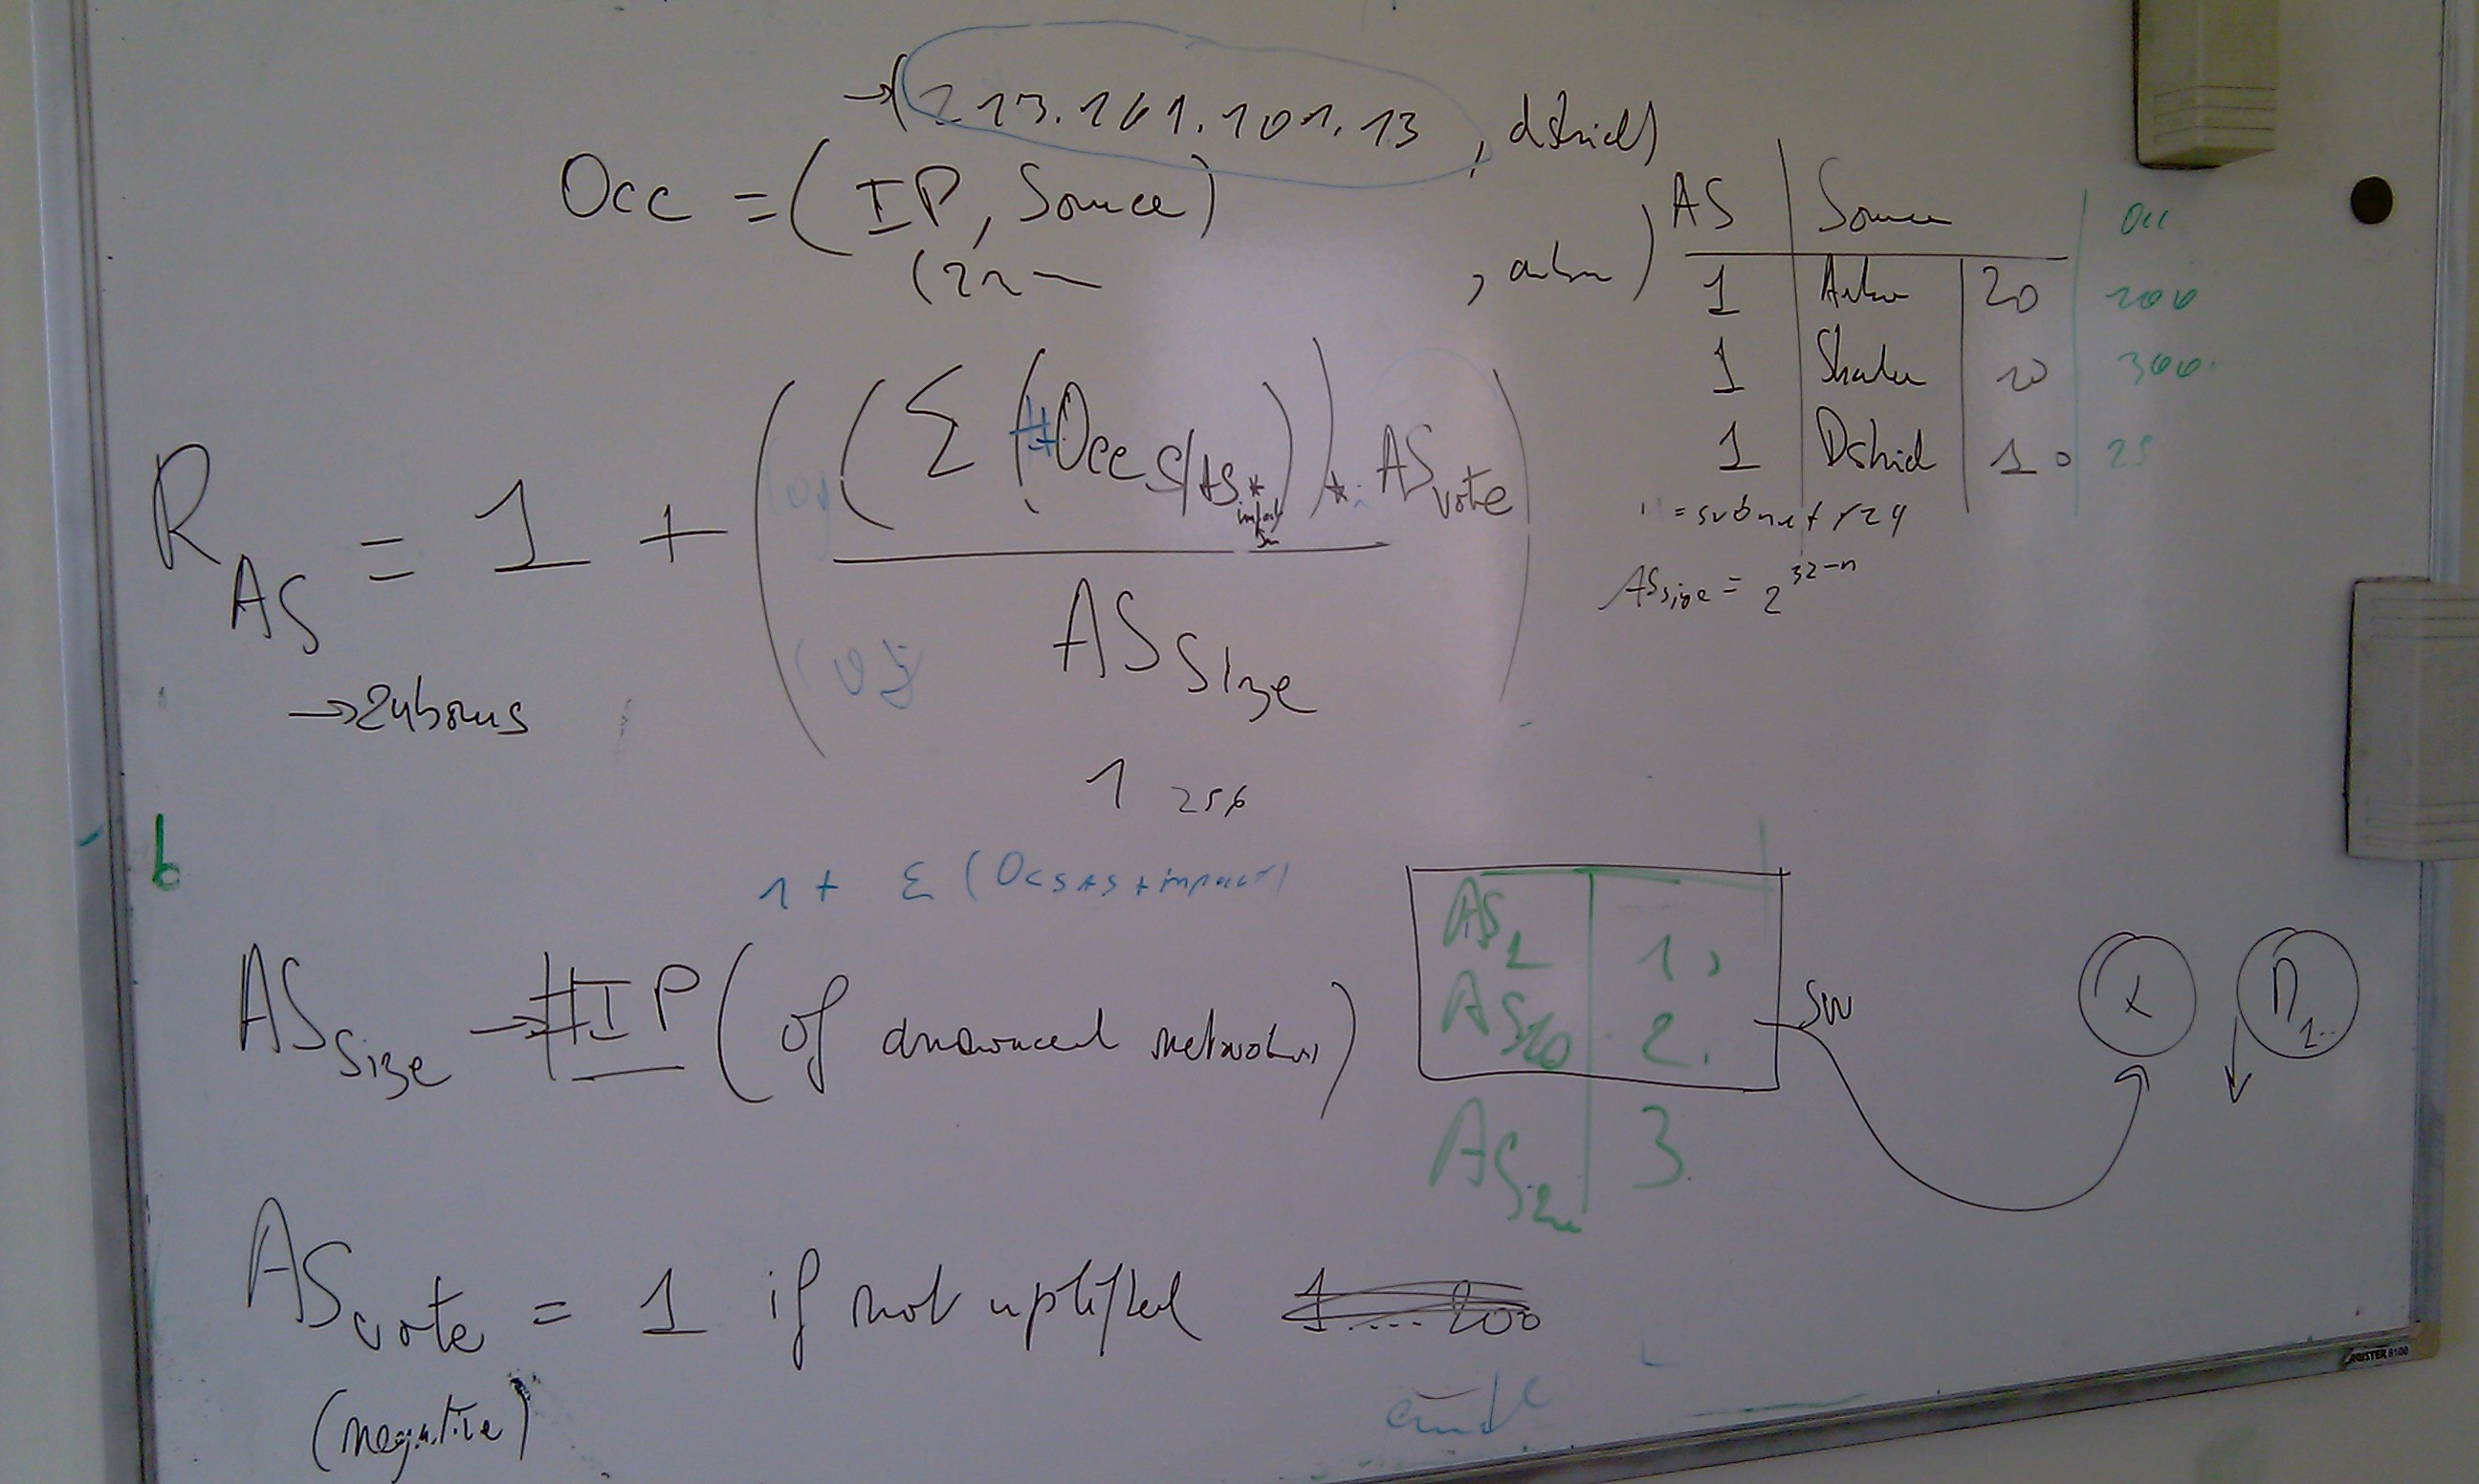 →(213.161.101.13, dshield)
Occ = (IP, Source)
AS | Source | Occ
1 | 20 | 200
1 | 10 | 300
1 | Dshield | 10 | 25
= subnet /24
ASsize = 2^32-n
R AS = 1 + ( ( Σ ( #Occ S/AS * impact ) ) * AS vote ) / AS size
→ 24 hours
1 256
b
1 + Σ (Occ S AS * impact)
AS size → #IP ( of announced networks )
AS1 | 1,
2.
3.
AS vote = 1 if not uplifted 1....200
(negative)